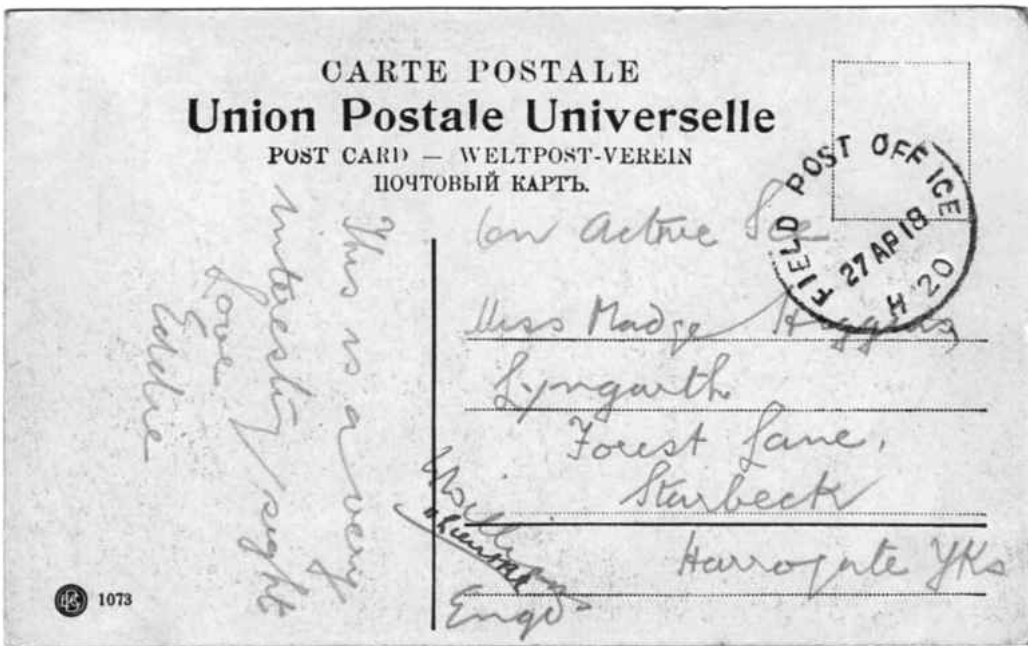 CARTE POSTALE
Union Postale Universelle
POST CARD — WELTPOST-VEREIN
ПОЧТОВЫЙ КАРТЪ.
FIELD POST OFFICE
27 AP 18
H 20
This is a very
interesting sight
Love
Eddie
On Active Sce
Miss Madge Higgins,
Lyngarth
Forest Lane,
Starbeck
Harrogate Yks
Engd
1073